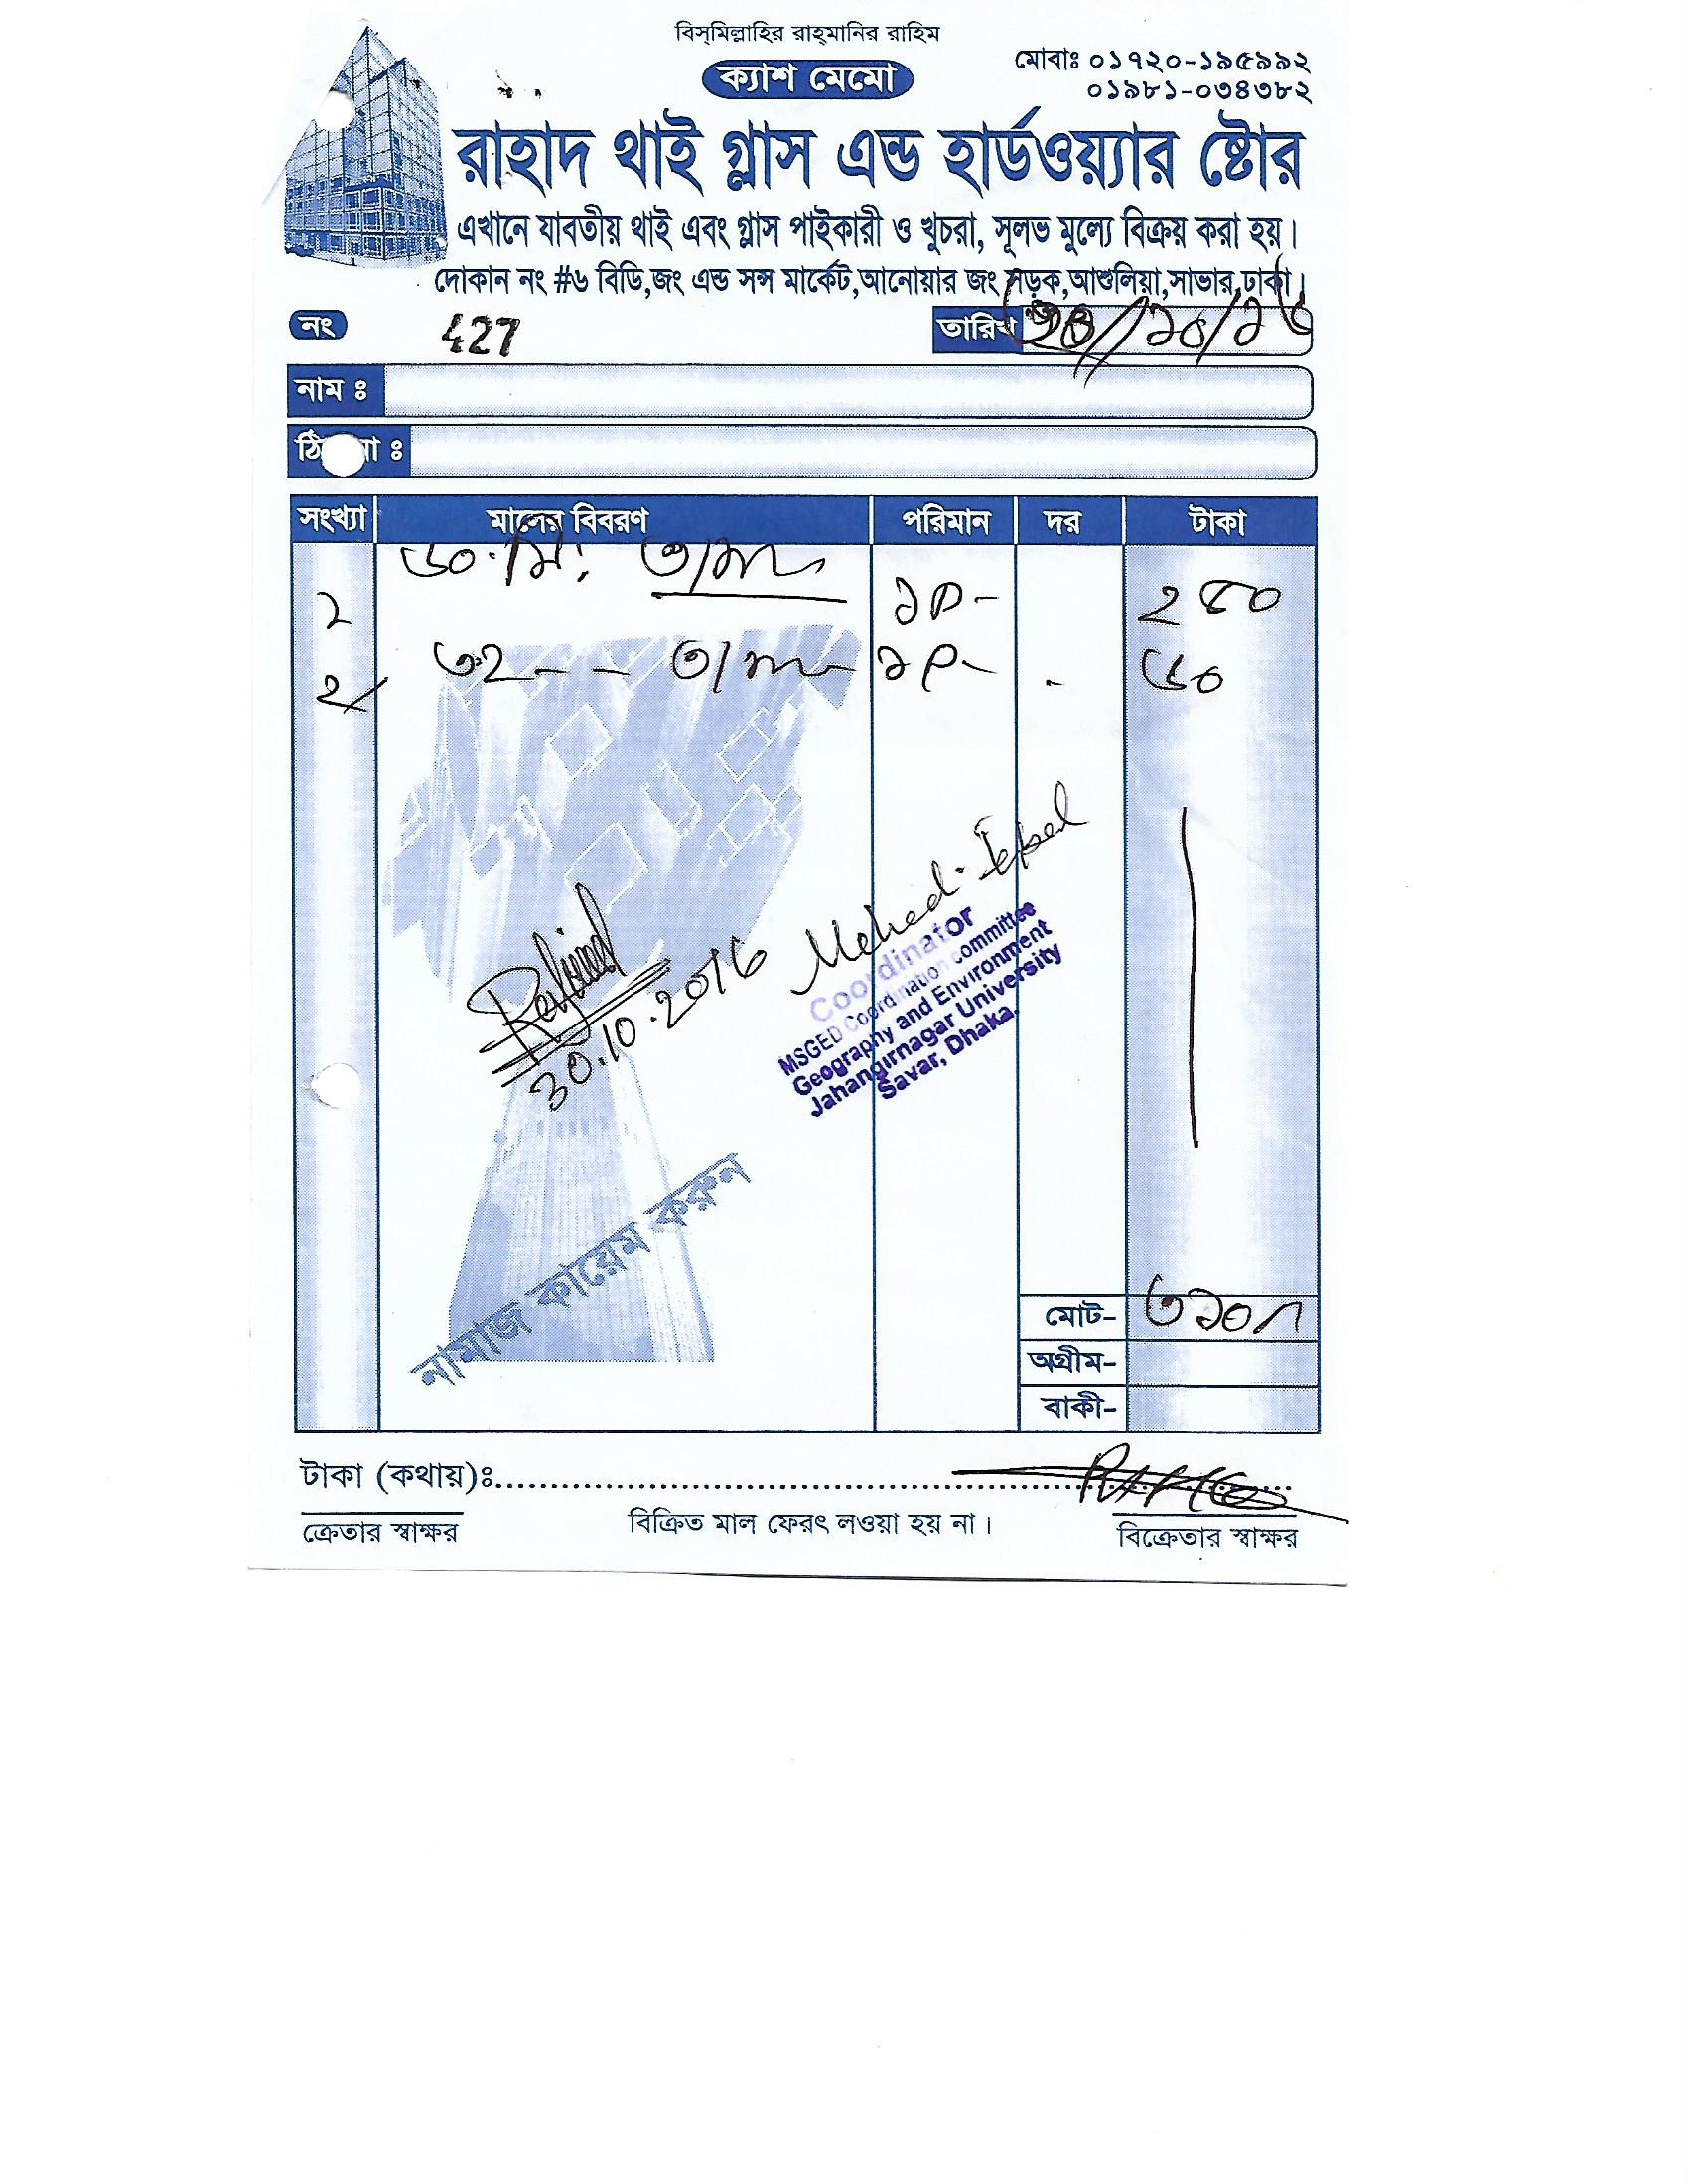 বিস্‌মিল্লাহির রাহ্‌মানির রাহিম
ক্যাশ মেমো
মোবাঃ ০১৭২০-১৯৫৯৯২
০১৯৮১-০৩৪৩৮২
রাহাদ থাই গ্লাস এন্ড হার্ডওয়্যার ষ্টোর
এখানে যাবতীয় থাই এবং গ্লাস পাইকারী ও খুচরা, সূলভ মুল্যে বিক্রয় করা হয়।
দোকান নং #৬ বিডি,জং এন্ড সন্স মার্কেট,আনোয়ার জং সড়ক,আশুলিয়া,সাভার,ঢাকা।
নং 427 তারিখ
নাম ঃ
ঃ
সংখ্যা মালের বিবরণ পরিমান দর টাকা
২ ৬০
Mehedi Iqbal
30.10.2016
Coordinator
MSGED Coordination committee
Geography and Environment
Jahangirnagar University
Savar, Dhaka.
নামাজ কায়েম করুন
মোট- ৩১০/
অগ্রীম-
বাকী-
টাকা (কথায়)ঃ
ক্রেতার স্বাক্ষর বিক্রিত মাল ফেরৎ লওয়া হয় না। বিক্রেতার স্বাক্ষর